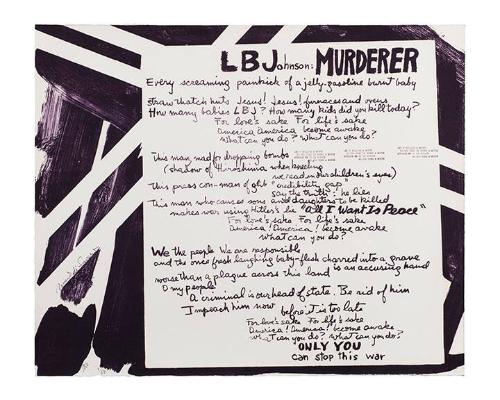 LBJohnson: MURDERER
Every screaming painkick of a jelly-gasoline burnt baby
straw thatch huts Jesus! Jesus! furnaces and ovens
How many babies LBJ? How many kids did you kill today?
For love's sake For life's sake
America, America become awake
What can you do? What can you do?
This man, mad for dropping bombs
(shadow of Hiroshima when kneeling
we read in our children's eyes)
This press con-man of
"credibility gap"
say the truth: he lies
This man who causes sons and daughters to be killed
makes war using Hitler's lie "All I Want Is Peace"
For love's sake For life's sake
America! America! become awake
What can you do?
We the people We are responsible
and the once fresh laughing baby-flesh charred into a grave
worse than a plague across this land is an accusing hand
O my people!
A criminal is our head of state. Be rid of him
Impeach him now before it is too late
For love's sake For life's sake
America! America! become awake
What can you do? What can you do?
ONLY YOU
can stop this war